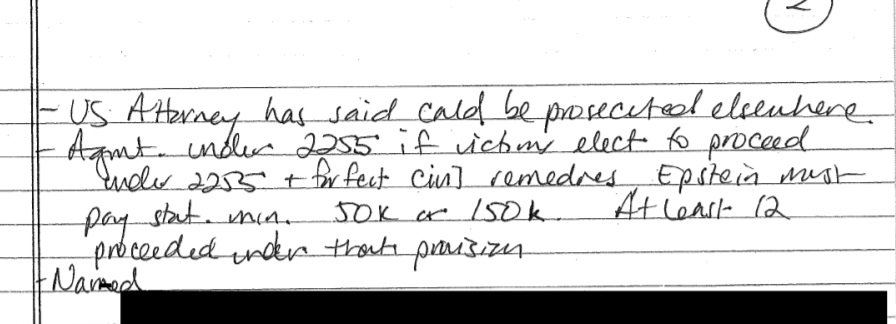 2
- US Attorney has said cald be prosecuted elsewhere.
- Agmt. under 2255 if victim elect to proceed
under 2255 + forfeit civil remedies Epstein must
pay stat. min. 50K or 150k. At least 12
proceeded under that provision
- Named